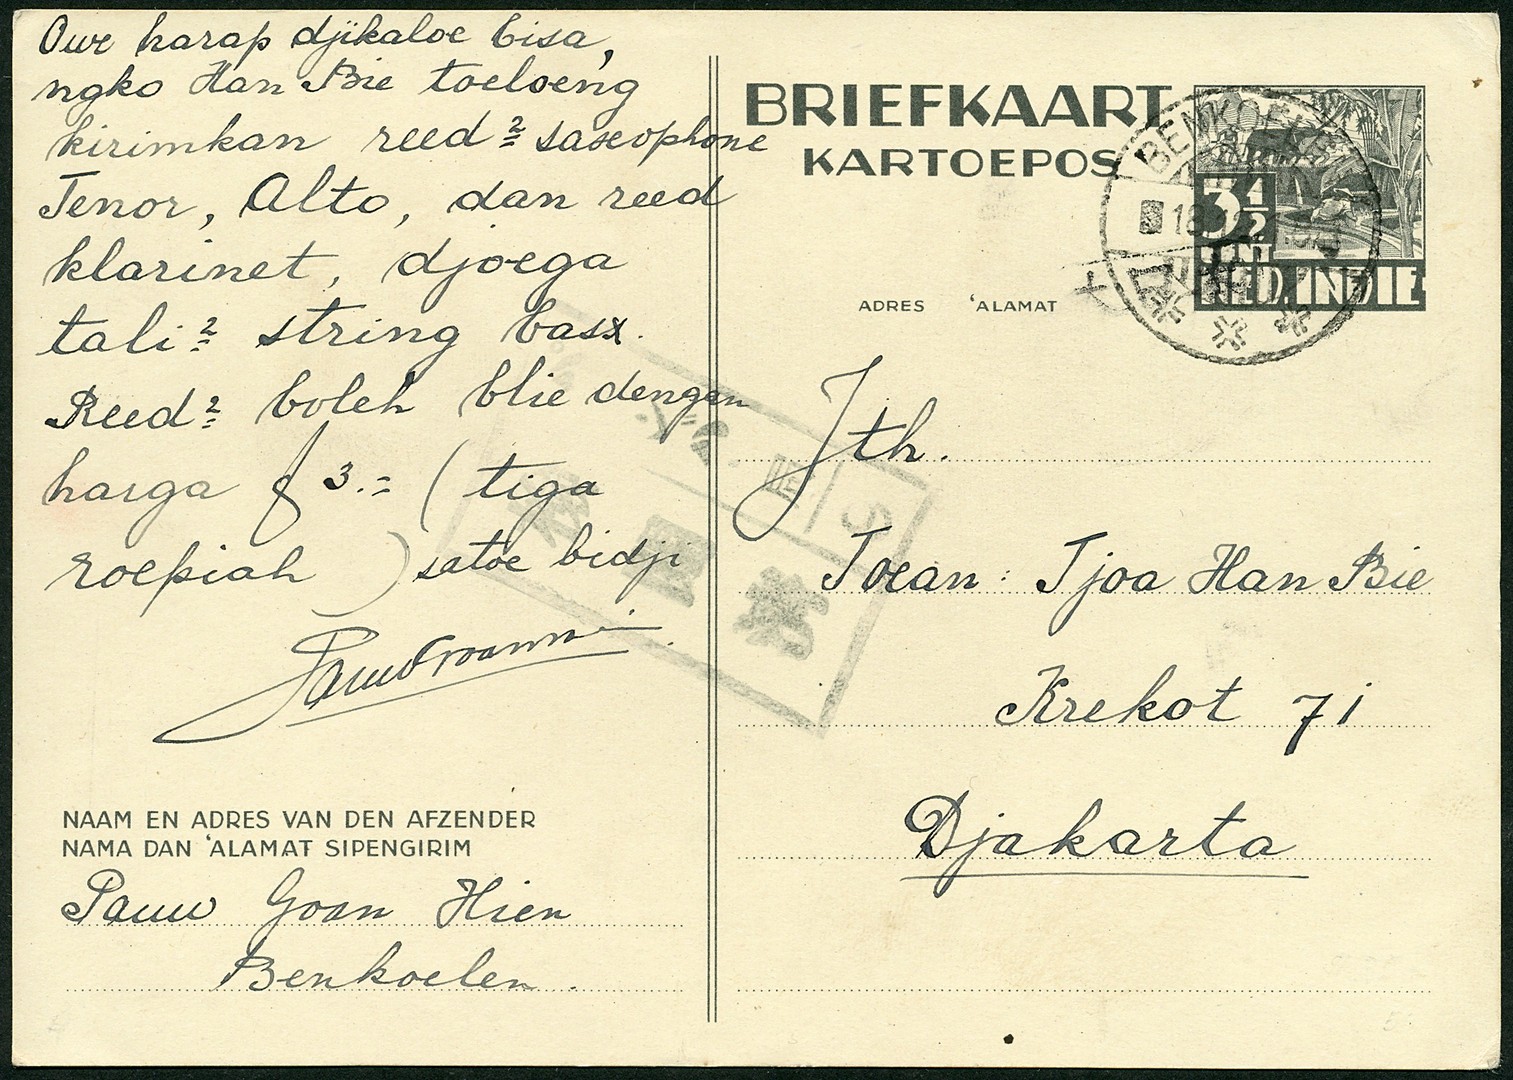 Owe harap djikaloe bisa,
ngko Han Bie toeloeng
kirimkan reed 2 saxophone
Tenor, Alto, dan reed
klarinet, djoega
tali 2 string bass.
Reed 2 boleh blie dengan
harga f 3.= (tiga
roepiah) satoe bidji
NAAM EN ADRES VAN DEN AFZENDER
NAMA DAN 'ALAMAT SIPENGIRIM
Pauw Goan Hien
Benkoelen.
BRIEFKAART
KARTOEPOS
3 1/2
CENT
NED. INDIE
BENKOELEN
18.12
ADRES 'ALAMAT
Jth.
Toean: Tjoa Han Bie
Krekot 71
Djakarta